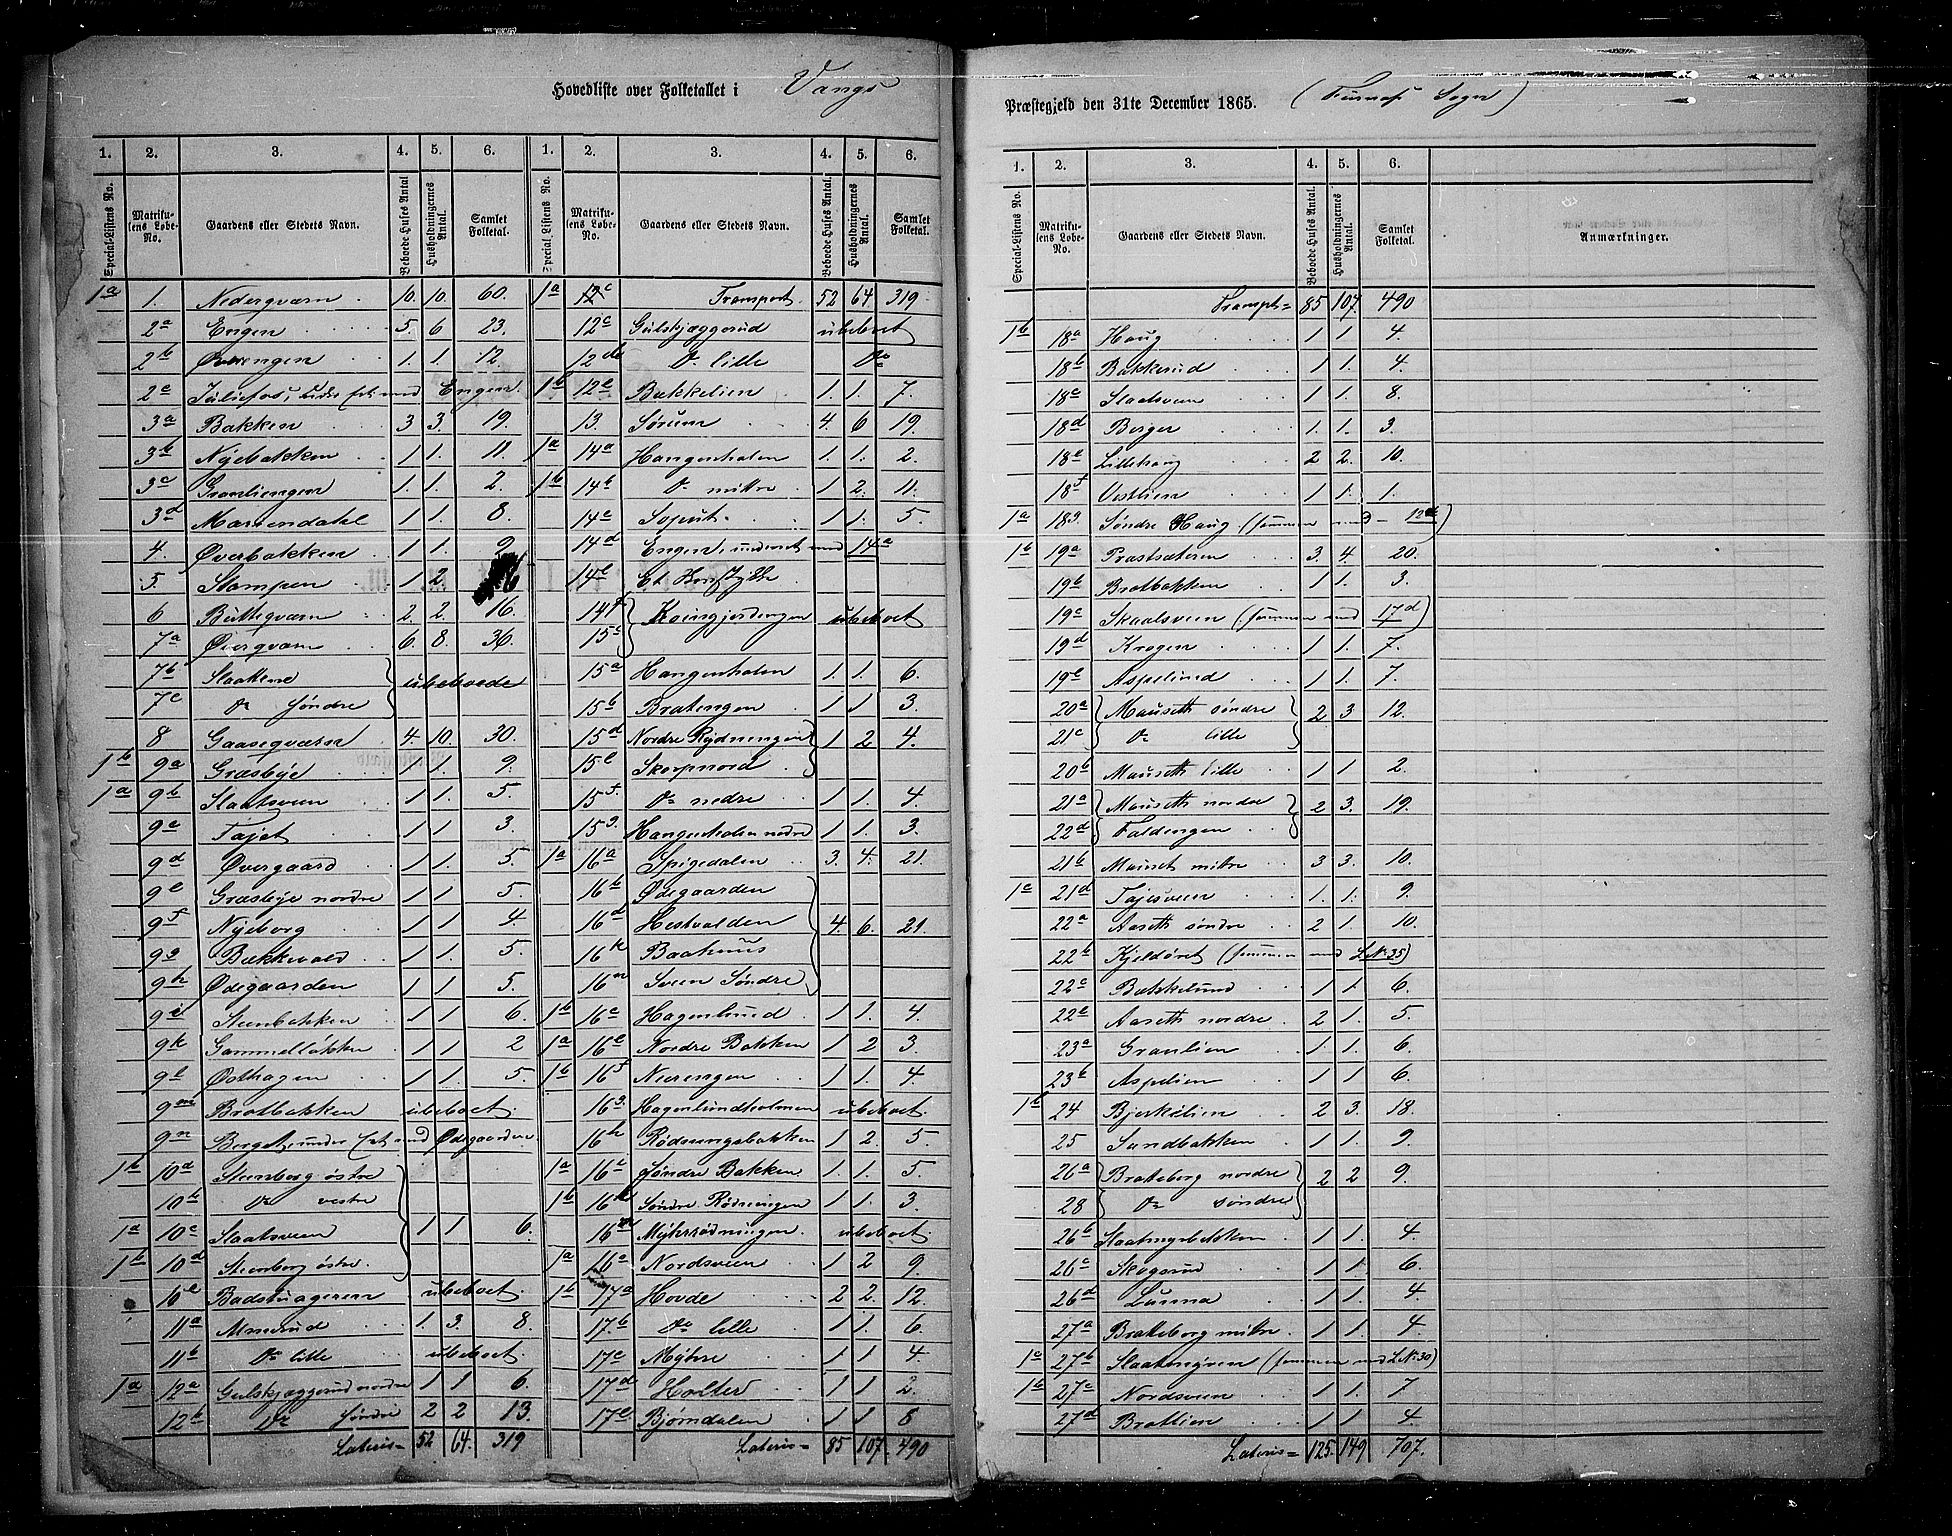 Hovedliste over Folketallet i Vangs
1. 2. 3. 4. 5. 6. 1. 2. 3. 4. 5. 6.
Special-Listens No. Matrikulens Løbe-No. Gaardens eller Stedets Navn. Beboede Huses Antal. Husholdningernes Antal. Samlet Folketal. Special-Listens No. Matrikulens Løbe-No. Gaardens eller Stedets Navn. Beboede Huses Antal. Husholdningernes Antal. Samlet Folketal.
1a 1. Nederqværn 10. 10. 60.
2a Engen 5. 6 23.
2b Øvrengen 1. 1 12
2c Juliefos, under et med Engen.
3a Bakken 3 3. 19.
3b Nyebakken 1 1. 11.
3c Granliengen 1. 1. 2.
3d Mariendahl 1 1. 8.
4. Øverbakken 1 1. 2
5. Stampen 1 2.
6 Bütteqværn 2. 2. 16.
7a Øverqværn 6. 8. 36.
7b Slaakene } ubeboede
7c Do søndre
8 Gaaseqværn 4. 10. 30.
1b 9a Græsbye 1 1. 9.
1a 9b Slaatsveen 1 1. 5.
9c Tajet 1 1 3.
9d Øvergaard 1 1. 5.
9e Græsbye nordre 1 1 5.
9f Nyeborg 1 1 4.
9g Bækkevold 1 1 5.
9h Ødegaarden 1 1 5.
9i Steenbakken 1 1 6.
9k Gammelløkken 1 1 2
9l Østhagen 1 1. 5.
9m Bratbakken ubeboet.
9n Berget, under et med Ødegaarden
1b 10a Steenberg østre
10b Do vestre
1a 10c Slaatsveen 1 1 6.
1b 10d Steenberg østre.
10e Badstuageren ubeboet.
11a Almerud 1. 3. 8.
11b Do lille ubeboet.
1a 12a Gulskjæggerud nordre 1 1 6.
12b Do søndre 2 2 13.
Lateris = 52 64. 319
1a 12c Transport. 52 64. 319
12c Gulskjæggerud ubeboet
12d Do lille Do
1b 12e Bækkelien 1. 1. 7.
13. Sørum 4. 6 19.
1a 14a Hangenholen 1. 1. 2.
1b 14b Do mitre 1. 2. 11.
14c 1 1. 5.
14d Engen, under et med 14a
14e Et Houstykke
14f } Koiengjordingen ubeboet
15c
15a Hangenholen 1. 1. 6.
15b Bratengen 1 1 3.
15d Nordre Rydningen } 1 2 4.
15e Skorpnord
15f Do nedre 1 1. 4.
15g Hangenholen nedre 1 1. 3.
1a 16a Spigedalen 3. 4. 21.
16b Ødegaarden
16d Hestvolden 4. 6. 21.
16k Baathuus
16m Sveen Søndre
1b 16c Hagenlund 1 1. 4.
1a 16e Nordre Bakken 1 2 3.
1b 16f Nerengen 1 1. 4.
16g Hagenlundholmen ubeboet.
16h Rødningsbakken 1 2. 5.
1a 16i Søndre Bakken 1. 1. 5.
1b 16l Søndre Rødningen 1 1. 3.
Myhrrødningen ubeboet.
1a Nordsveen 1 2 9.
1b 17a Hovde 2 2. 12.
17b Do lille 1 1. 6.
17c Myhre 1 1 4.
17d Holter 1 1 2.
17e Bjørndalen 1 1 8
Lateris = 85 107. 490
Præstegjeld den 31te December 1865. (Furnæs Sogn)
1. 2. 3. 4. 5. 6.
Special-Listens No. Matrikulens Løbe-No. Gaardens eller Stedets Navn. Beboede Huses Antal. Husholdningernes Antal. Samlet Folketal. Anmærkninger.
Transpt = 85 107. 490
1b 18a Haug 1 1 4.
18b Bakkerud 1 1. 4.
18c Slaatsveen 1 1. 8.
18d Berger 1. 1. 3.
18e Lillehaug 2 2. 10.
18f Vestlien 1 1. 1.
1a 18g Søndre Haug (sammen med 12d)
1b 19a Præstsæteren 3. 4. 20.
19b Bratbakken 1 1. 3.
19c Skaalsveen (sammen med 17d)
19d Krogen 1 1. 7.
19e Aspelund 1 1. 7.
20a } Mauseth søndre } 2. 3 12.
21c Do lille
20b Mauseth lille 1 1 2.
21a } Mauseth nordre } 2 3. 19.
22d Faldengen
21b Mauset mitre 3 3. 10.
1c 21d Tajesveen 1. 1. 9.
22a Aaseth søndre 2 1. 10.
22b Kjeldøret (sammen med L.N. 35)
22c Bækkelund 1 1 6.
22e Aaseth nordre. 2 1. 5.
23a Granlien 1 1. 6.
23b Aspelien 1 1 6.
1b 24 Bjerkelien 2 3. 18.
25 Sandbakken 1 1. 9.
26a } Brateberg nordre } 2 2 9.
28 Do søndre
26b Slaatmyrbakken 1 1. 4.
26c Skogsrud 1 1. 6.
26d Lunna 1 1. 4.
27a Brateberg mitre. 1 1. 4.
1c 27b Slaatmyren (sammen med L.N. 30)
1b 27c Nordsveen 1 1. 7
27d Bratlien 1 1. 4.
Lateris = 125. 149 707.